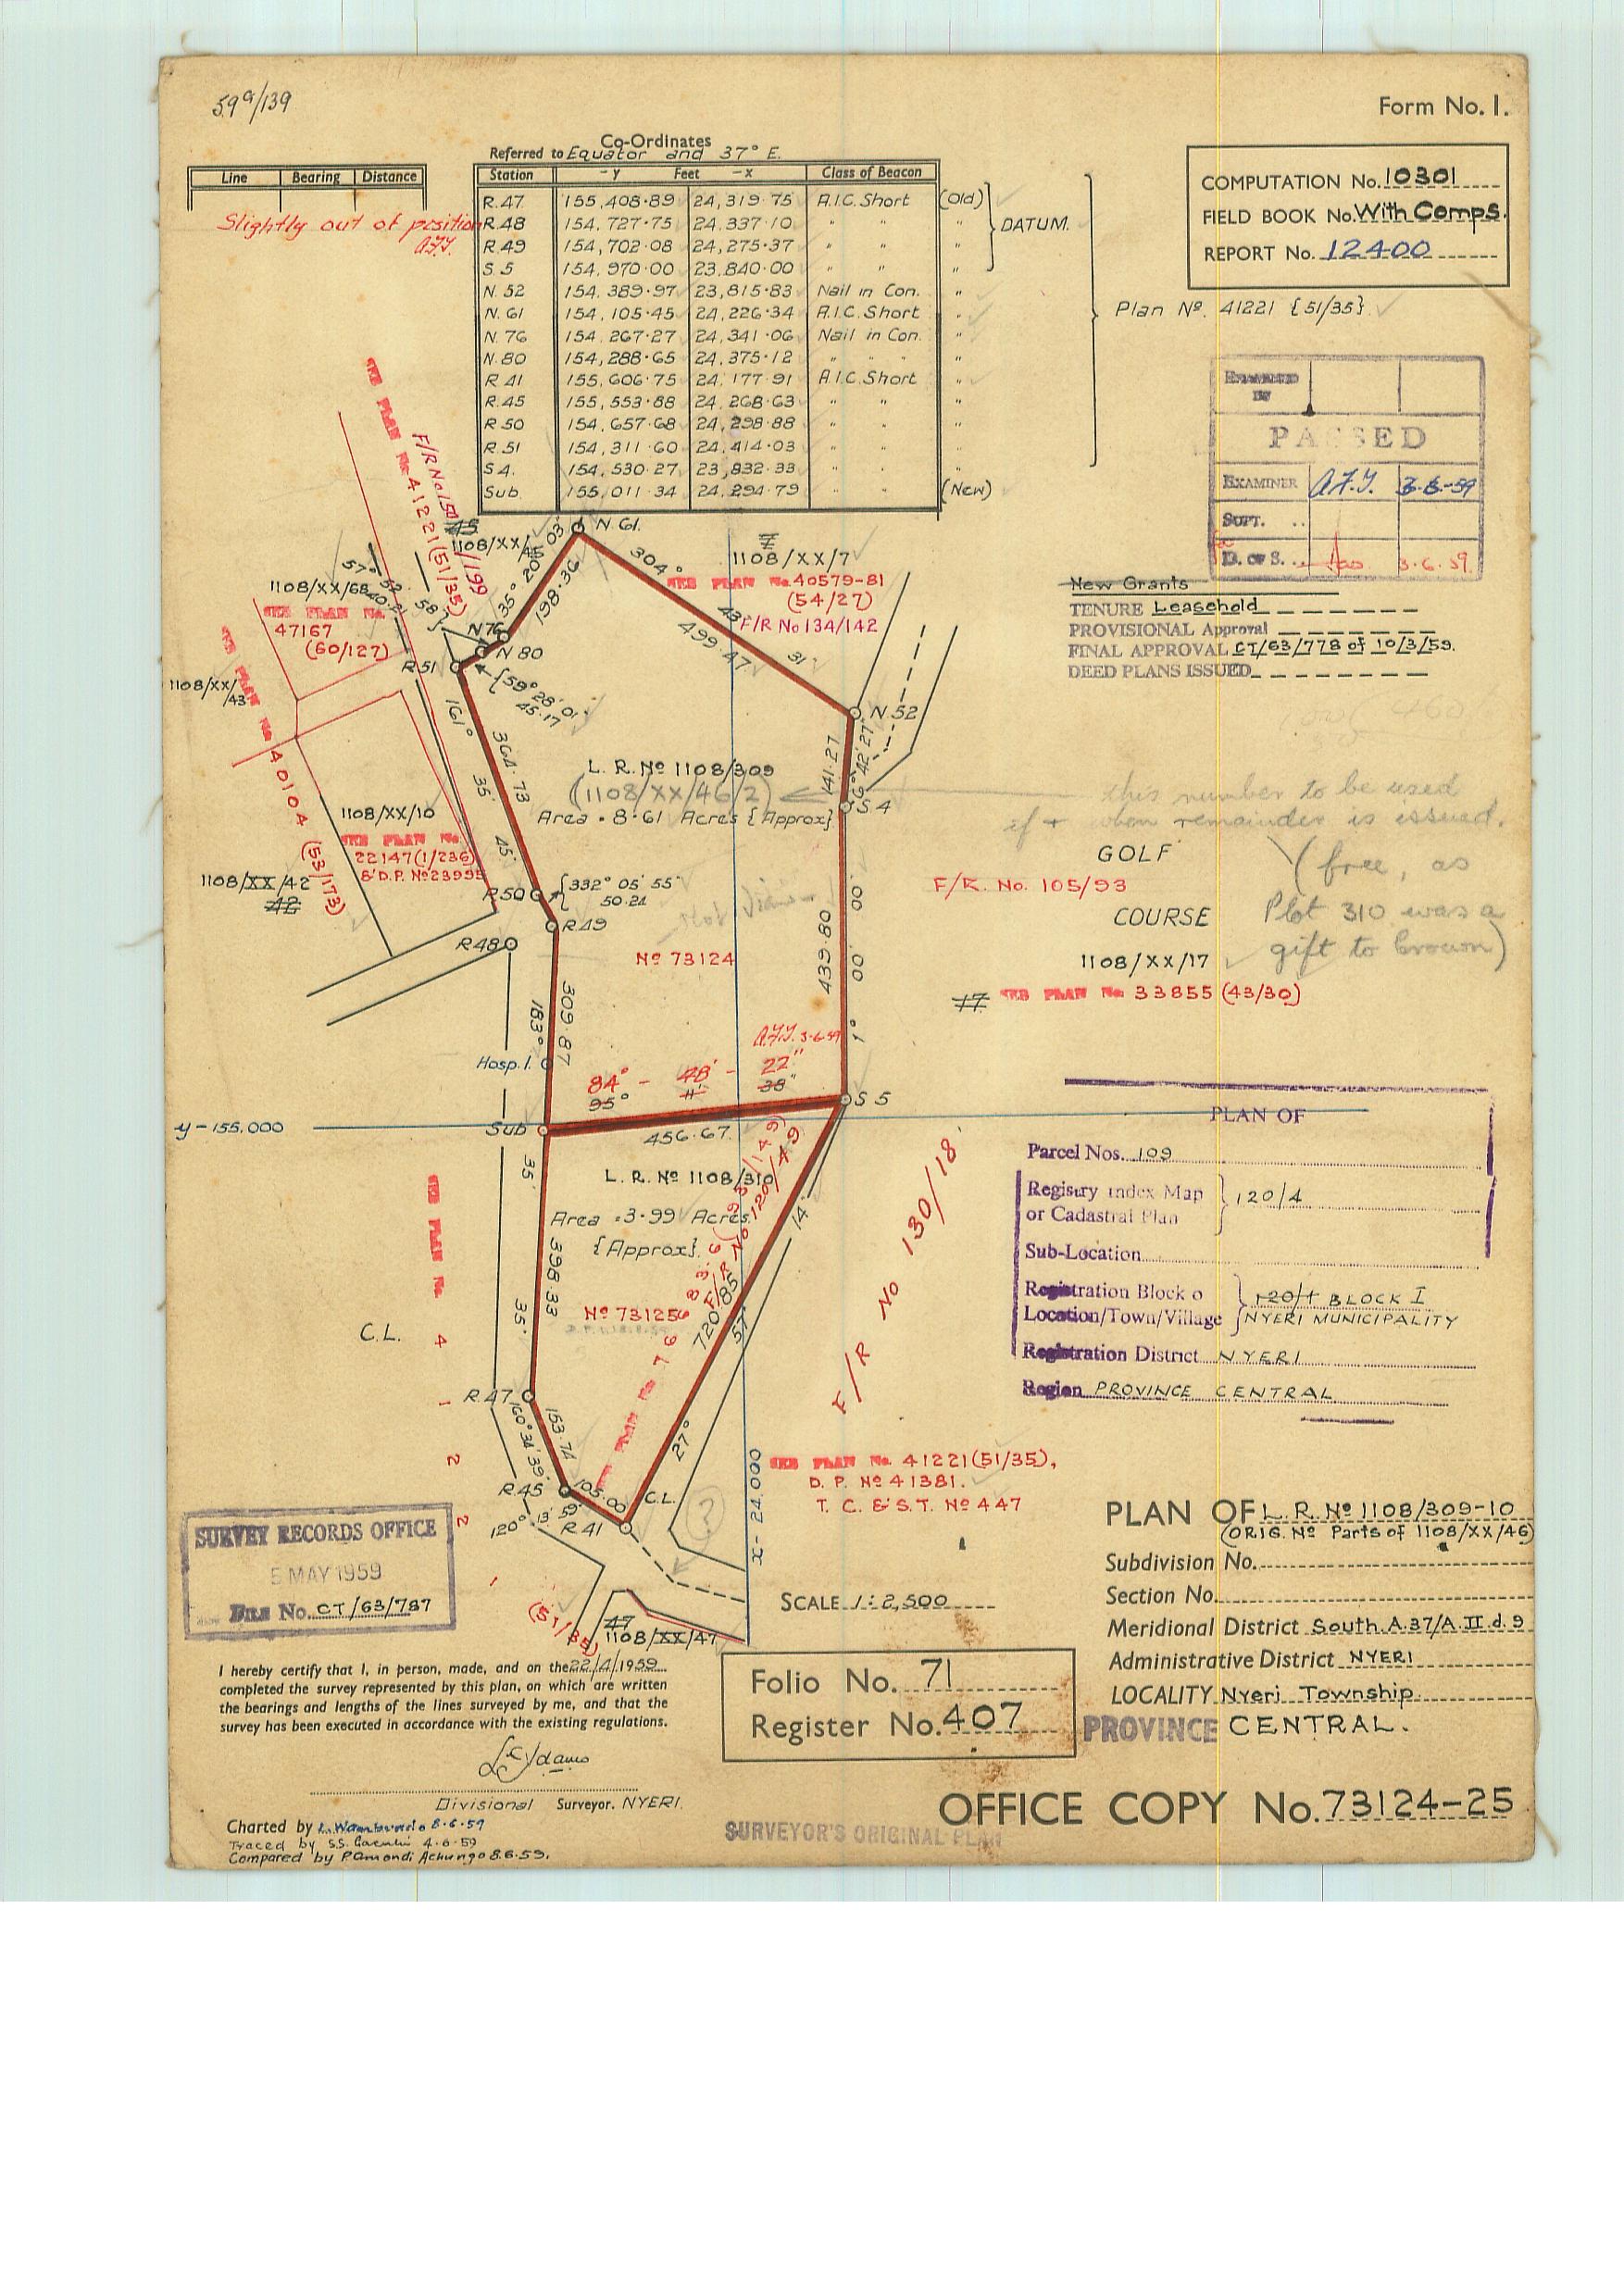 59ᵃ/139
Form No. 1.
Co-Ordinates
Referred to Equator and 37° E.
Line Bearing Distance
Slightly out of position
A.F.Y.
Station - y Feet - x Class of Beacon
R.47 155,408·89 24,319·75 A.I.C. Short (Old)
R.48 154,727·75 24,337·10 " " "
R.49 154,702·08 24,275·37 " " "
S.5 154,970·00 23,840·00 " " "
N.52 154,389·97 23,815·83 Nail in Con. "
N.61 154,105·45 24,226·34 A.I.C. Short "
N.76 154,267·27 24,341·06 Nail in Con. "
N.80 154,288·65 24,375·12 " " " "
R 41 155,606·75 24,177·91 A.I.C. Short "
R.45 155,553·88 24,268·63 " " "
R.50 154,657·68 24,298·88 " " "
R.51 154,311·60 24,414·03 " " "
S 4. 154,530·27 23,832·33 " " "
Sub. 155,011·34 24,294·79 " " (New)
DATUM.
Plan Nº. 41221 {51/35}
COMPUTATION No. 10301
FIELD BOOK No. With Comps.
REPORT No. 12400
EXAMINED
IN
PASSED
EXAMINER A.F.Y. 3-6-59
SUPT. ..
D. OF S. .. 3.6.59
New Grants
TENURE Leasehold
PROVISIONAL Approval
FINAL APPROVAL CT/63/778 of 10/3/59.
DEED PLANS ISSUED
SEE PLAN No. 41221 (51/35)
F/R No 150/199
1108/XX/45
N 61.
35° 20' 03"
198·36
304° 43' 31"
499·47
7
1108/XX/7
SEE PLAN No. 40579-81
(54/27)
F/R No 134/142
1108/XX/68
57° 52' 58"
40·2
SEE PLAN No.
47167
(60/127)
N 76
N 80
R 51
{59° 28' 01"
45·17
1108/XX/43
SEE PLAN No 40104 (53/173)
161° 35' 45"
364·73
N 52
141·27
6° 42' 27"
S 4
L. R. Nº 1108/309
(1108/XX/46/2)
Area = 8·61 Acres {Approx}
this number to be used
if + when remainder is issued.
(free, as
Plot 310 was a
gift to brown)
1108/XX/10
SEE PLAN No.
22147(1/236)
& D.P. Nº 23995
1108/XX/42
42
R 50
{332° 05' 55"
50·24
R 49
R 48
GOLF
F/R. No. 105/93
COURSE
1108/XX/17
17 SEE PLAN No 33855 (43/30)
Nº 73124
439·80
1° 00' 00"
309·87
183° 35' 35"
Hosp. 1.
A.F.Y. 3-6-59
84° - 48' - 22"
95° 11' 38"
456·67
S 5
y - 155,000
Sub
L. R. Nº 1108/310
Area = 3·99 Acres
{Approx}.
398·33
Nº 73125
F/R No 120/49
720·85
27° 57' 14"
F/R No 130/18
SEE PLAN No 41221 (51/35)
C.L.
R 47
160° 34' 39"
153·74
R 45
105·00
120° 13' 59"
R 41
C.L.
(?)
x - 24,000
SEE PLAN No. 41221 (51/35),
D. P. Nº 41381.
T. C. & S.T. Nº 447
47
1108/XX/47
PLAN OF
Parcel Nos. 109
Registry Index Map
or Cadastral Plan } 120/4
Sub-Location
Registration Block o
Location/Town/Village } 120/4 BLOCK I
NYERI MUNICIPALITY
Registration District NYERI
Region PROVINCE CENTRAL
SURVEY RECORDS OFFICE
5 MAY 1959
FILE No. CT/63/787
SCALE 1:2,500
PLAN OF L.R. Nº 1108/309-10
(ORIG. Nº Parts of 1108/XX/46)
Subdivision No.
Section No.
Meridional District South A.37/A.II.d.9
Administrative District NYERI
LOCALITY Nyeri Township
PROVINCE CENTRAL.
Folio No. 71
Register No. 407
I hereby certify that I, in person, made, and on the 22/4/1959
completed the survey represented by this plan, on which are written
the bearings and lengths of the lines surveyed by me, and that the
survey has been executed in accordance with the existing regulations.
Divisional Surveyor. NYERI.
Charted by 8·6·59
Traced by S.S. 4·6·59
Compared by P. Omondi Achungo 8.6.59.
SURVEYOR'S ORIGINAL PLAN
OFFICE COPY No. 73124-25